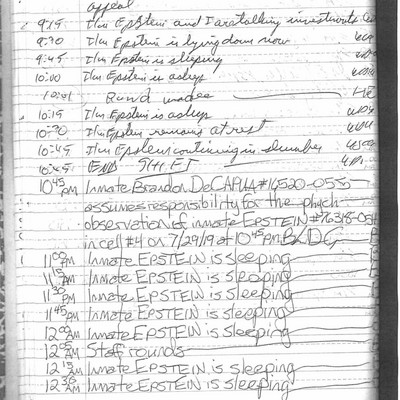 appeal
9:15 I/m Epstein and I are talking investments
9:30 I/m Epstein is lying down now
9:45 I/m Epstein is sleeping
10:00 I/m Epstein is asleep
10:01 Round made
10:15 I/m Epstein is asleep
10:30 I/m Epstein remains at rest
10:45 I/m Epstein continuing in slumber
10:45 END SHIFT
10 45 PM Inmate Brandon DeCAPUA #16520-055
assumes responsibility for the phych
observation of inmate EPSTEIN #76318-054
in cell #4 on 7/29/19 at 10 45 PM. BXDG
11 00 PM Inmate EPSTEIN is sleeping
11 15 PM Inmate EPSTEIN is sleeping
11 30 PM Inmate EPSTEIN is sleeping
11 45 PM Inmate EPSTEIN is sleeping
12 00 AM Inmate EPSTEIN is sleeping
12 05 AM Staff rounds
12 15 AM Inmate EPSTEIN is sleeping
12 30 AM Inmate EPSTEIN is sleeping